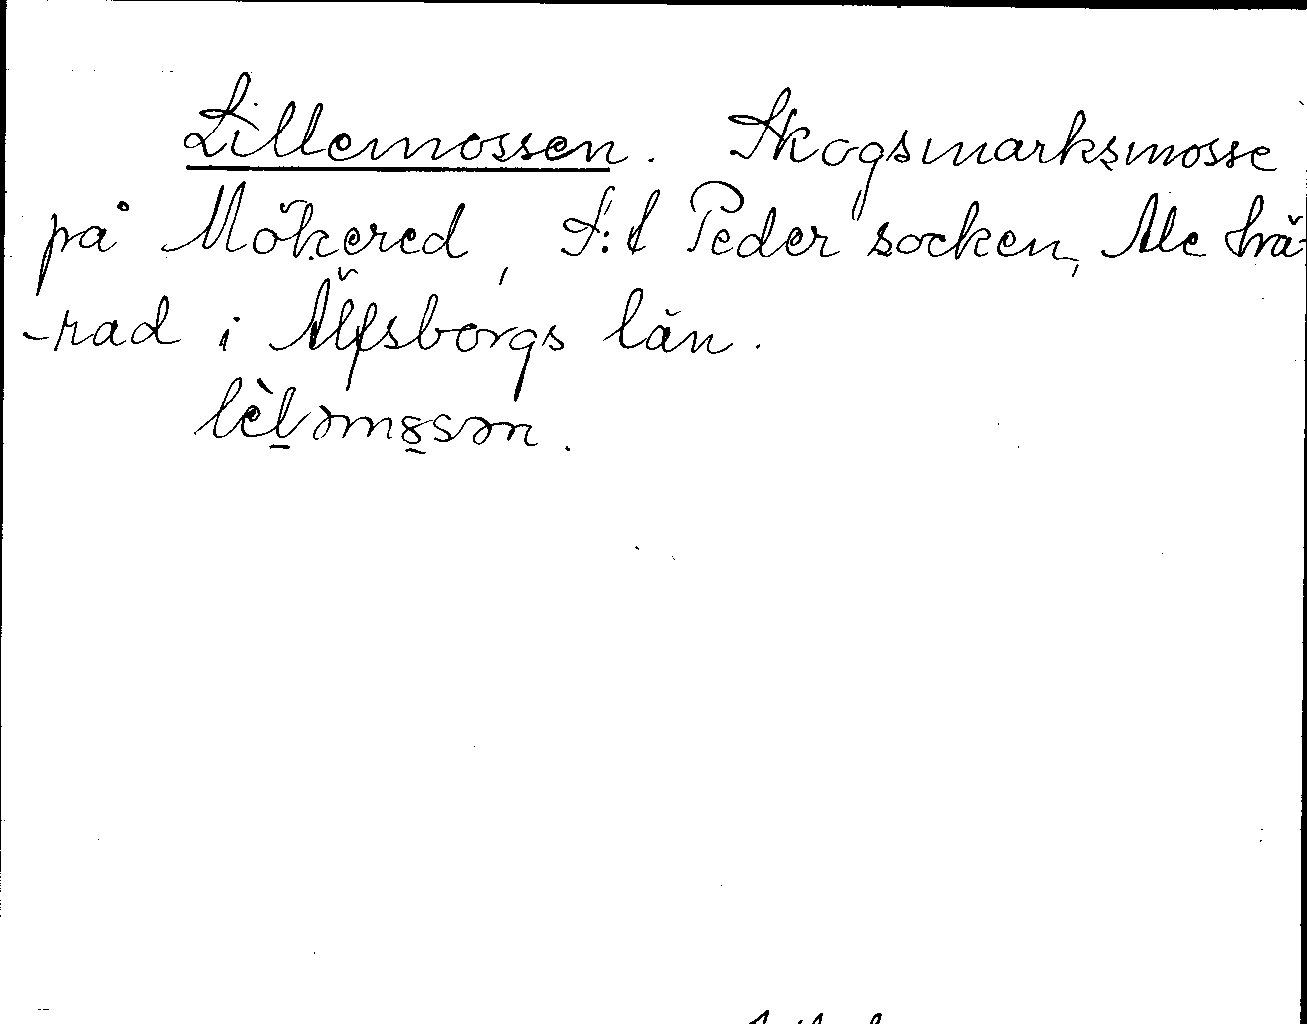 Lillemossen. Skogsmarksmosse
på Mökered, S:t Peder socken, Ale hä-
-rad i Älfsborgs län.
lèləmɷsən.